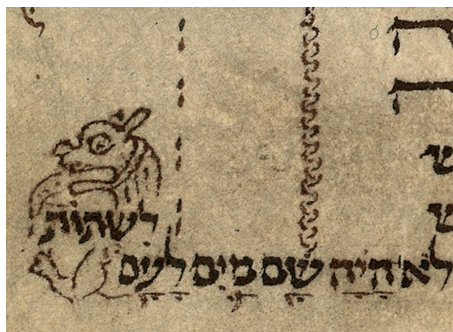 לא היה שם מים לעם
לשתות